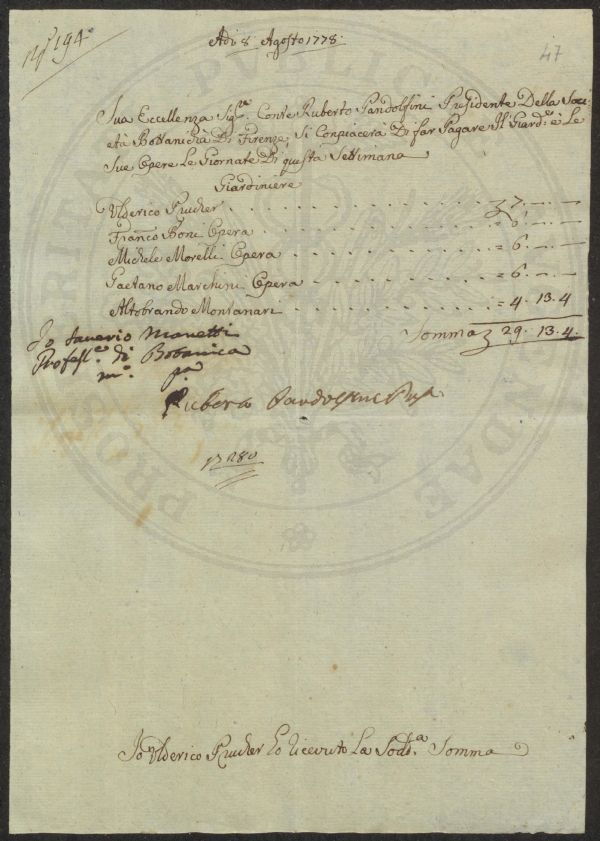 Nº 194
Adì 8 Agosto 1778.
47
Sua Eccellenza Sigre. Conte Ruberto Pandolfini Presidente Della Soci
età Bottanicha Di Firenze, Si Conpiacerà Di far Pagare Il Giardre. e Le
Sue Opere Le Giornate Di questa Settimana
Giardiniere
Ulderico Prucker . . . . . . . . . . . . £ 7. — . —
Franco Boni Opera . . . . . . . . . . . = 6. — . —
Michele Morelli Opera . . . . . . . . . = 6. — . —
Gaetano Marchini Opera . . . . . . . . = 6. — . —
Altobrando Montanari . . . . . . . . . = 4. 13. 4
Somma £ 29. 13. 4.
Io Saverio Manetti
Professe. di Botanica
mo. pa
Ruberto Pandolfini Pres.
280
Io Ulderico Prucker Ho Ricevuto La Sodda. Somma
PUBLICAE
PROSPERITATI